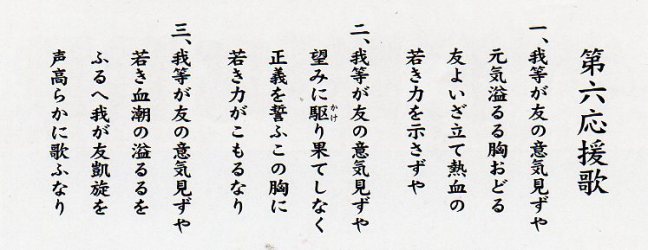 第六応援歌
一、我等が友の意気見ずや
元気溢るる胸おどる
友よいざ立て熱血の
若き力を示さずや
二、我等が友の意気見ずや
望みに駆り果てしなく
かけ
正義を誓ふこの胸に
若き力がこもるなり
三、我等が友の意気見ずや
若き血潮の溢るるを
ふるへ我が友凱旋を
声高らかに歌ふなり